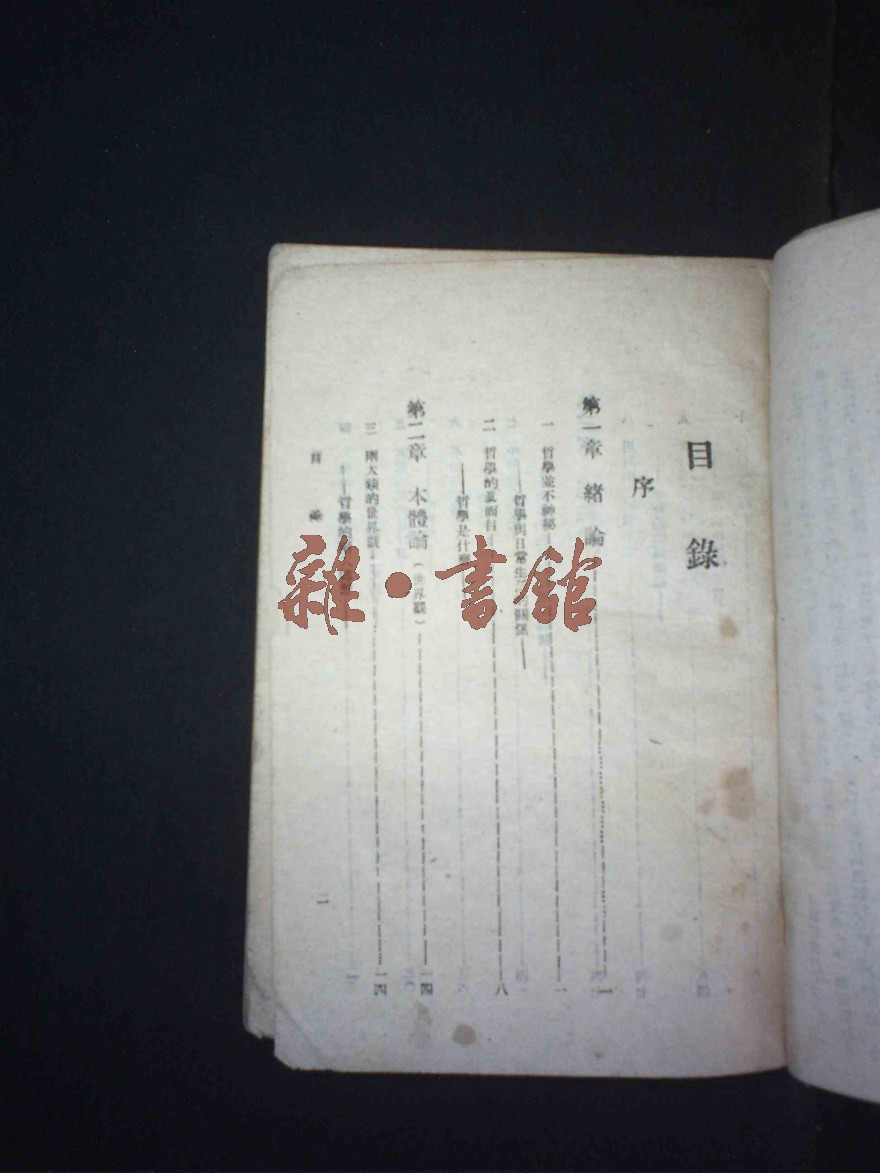 目錄
序
第一章 緒論————一
一 哲學並不神秘————一
——哲學與日常生 關係——
二 哲學的真面目————八
——哲學是什麼
第二章 本體論（世界觀）————一四
三 兩大類的世界觀————一四
——哲學的
目 錄
雜·書館